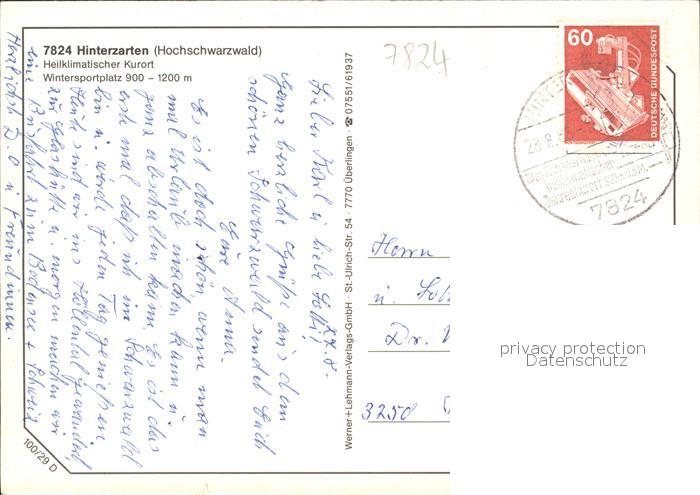 7824 Hinterzarten (Hochschwarzwald)
Heilklimatischer Kurort
Wintersportplatz 900 – 1200 m
7824
60
DEUTSCHE BUNDESPOST
28.8.
7824
Lieber Karl u. liebe
27.8.
Ganz herzliche Grüße aus dem
schönen Schwarzwald sendet Euch
Eure Anna.
Es ist doch schön wenn man
mal Urlaub machen kann u.
ganz abschalten kann. Es ist das
erste mal daß ich im Schwarzwald
bin u. werde jeden Tag genießen
Heute sind wir ins Höllental gewandert
zur Glashütte u. morgen machen wir
eine Busfahrt zum Bodensee + Schweiz
Herzlichst D.O u. Freundinnen.
Werner+Lehmann-Verlags-GmbH · St.-Ulrich-Str. 54 · 7770 Überlingen · ☎ 07551/61937
Herrn
u.
Dr.
3250
100/29 D
privacy protection
Datenschutz